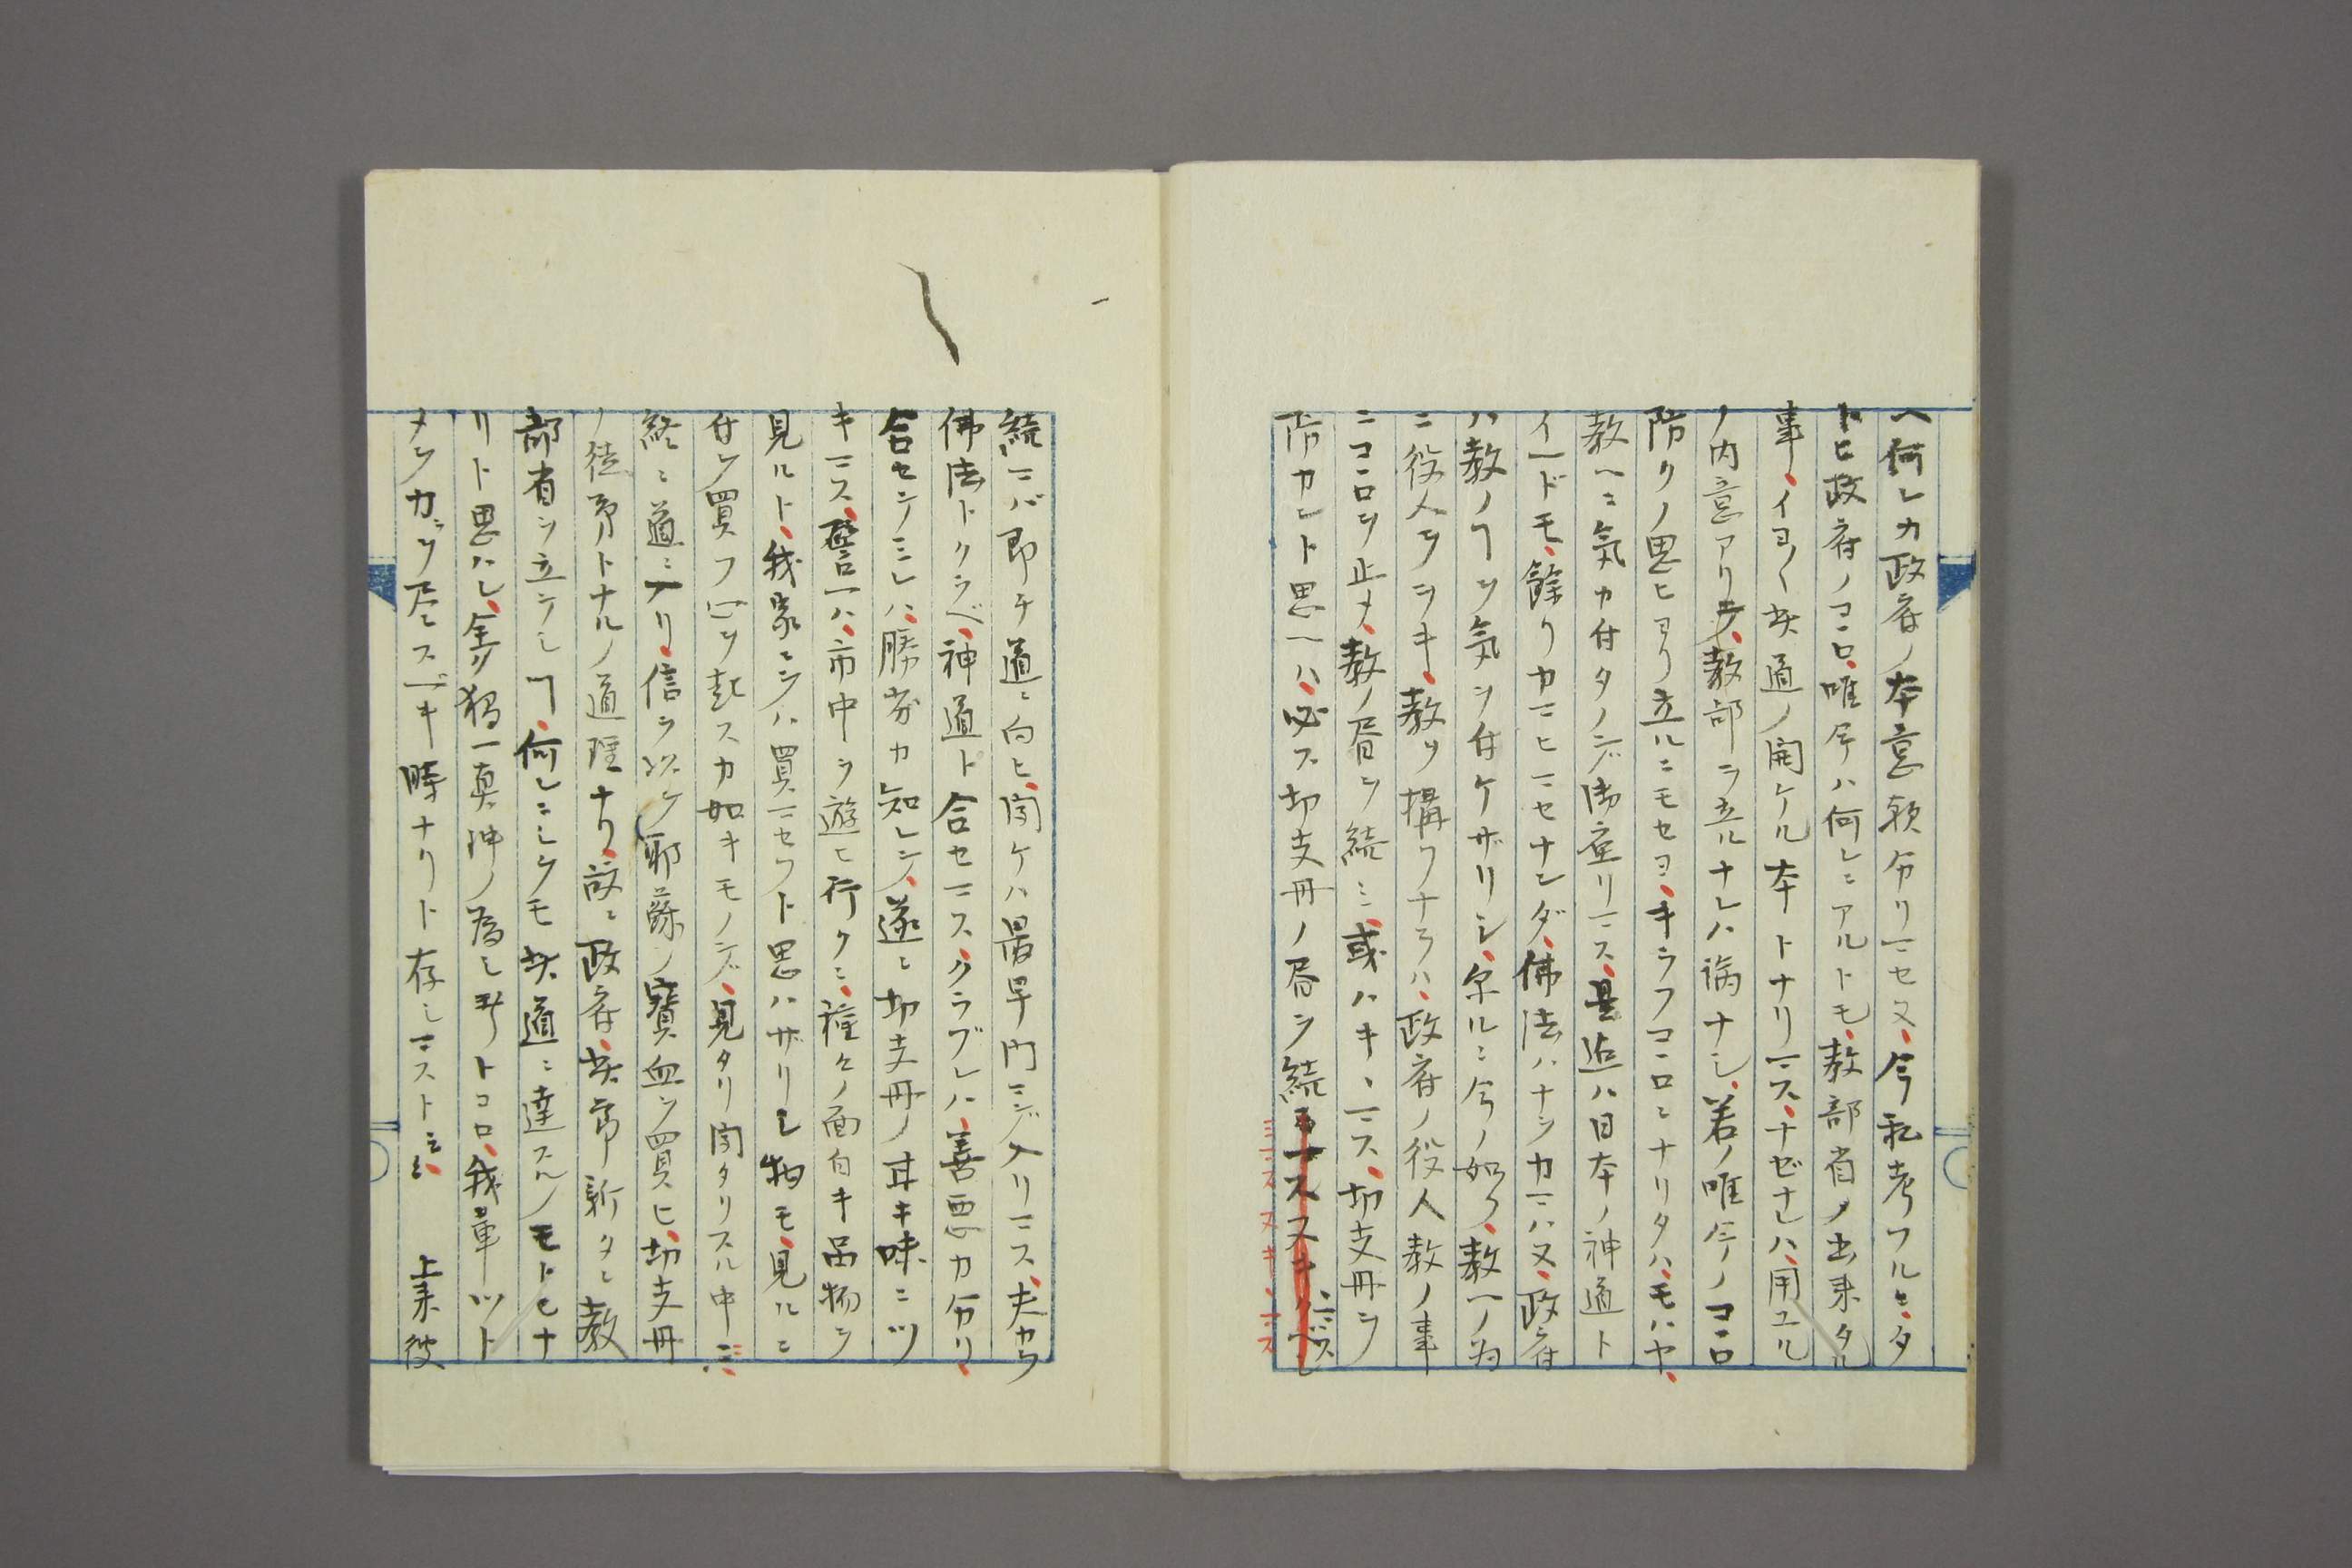 ヘ何レカ政府ノ本意頼分リマセヌ、今私考フルニ、タ
トヒ政府ノコヽロ、唯今ハ何レニアルトモ、教部省ノ出来タル
事、イヨ〱其道ノ開ケル本トナリマス、ナゼナレハ、用ユル
ノ内意アリテ、教部ヲ立ルナレハ論ナシ、若ノ唯今ノコヽロ
防クノ思ヒヨリ立ルニモセヨ、キラフコヽロニナリタハ、モハヤ、
教ヘニ気カ付タノデ御座リマス、是迄ハ日本ノ神道ト
イヘドモ、餘リカマヒマセナンダ、佛法ハナヲカマハヌ、政府
ハ教ノヿヲ気ヲ付ケザリシ、尓ルニ今ノ如ク、教ヘノ為
ニ役人ヲヲキ、教ヲ構フナラハ、政府ノ役人教ノ事
ニコヽロヲ止メ、教ノ書ヲ続ミ、或ハキヽマス、切支丹ヲ
防カント思ヘハ、必ス切支丹ノ書ヲ続
ミマス又キヽマス
続マバ即チ道ニ向ヒ、聞ケハ最早門マデ入リマス、夫カラ
佛法トクラベ、神道ト合セマス、クラブレハ、善悪カ分リ、
合セシミレハ、勝劣カ知レシ、遂ニ切支丹ノ甘キ味ニツ
キマス、譬ヘハ、市中ヲ遊ヒ行クニ、種々ノ面白キ品物ヲ
見ルト、我家ニシハ買マセフト思ハザリシ物モ、見ルニ
付ケ買フ心ヲ起スカ如キモノデ、見タリ聞タリスル中ニ
終ニ道ニ入リ、信ヲ以ケ耶蘇ノ寳血ヲ買ヒ、切支丹
ノ徒弟トナルノ道理ナリ、故ニ政府、其節新タニ教
部省ヲ立ラレシヿ、何レニシケモ其道ニ達スルノモトヒナ
リト思ハレ、全ク独一真神ノ為シ玉フトコロ、我軍ツト
メシカヲツ尽スベキ時ナリト存シマスト云云　上来彼